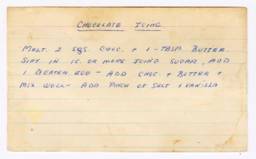 CHOCOLATE ICING
MELT 2 SQS CHOC. + 1 - TBSP BUTTER
SIFT IN 1 C. OR MORE ICING SUGAR, ADD
1 BEATEN EGG - ADD CHOC + BUTTER +
MIX WELL - ADD PINCH OF SALT + VANILLA